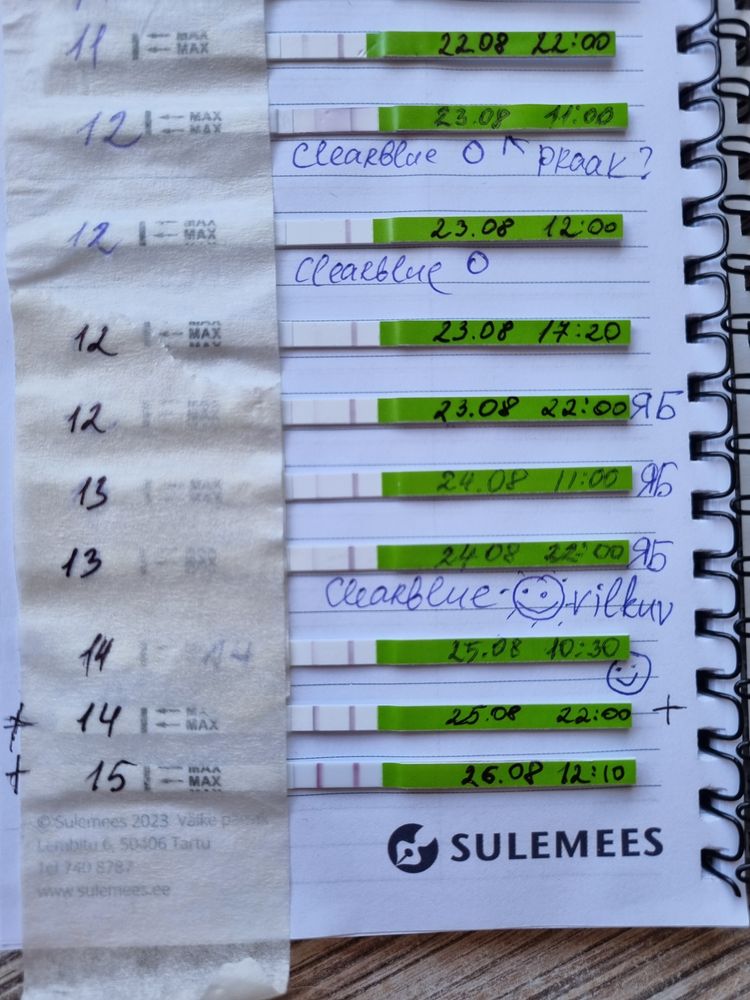 11 MAX MAX 22.08 22:00
12 MAX MAX 23.08 11:00
Clearblue O ↖ praak?
12 MAX MAX 23.08 12:00
Clearblue O
12 MAX MAX 23.08 17:20
12 23.08 22:00 ЯБ
13 24.08 11:00 ЯБ
13 24.08 22:00 ЯБ
Clearblue - vilkuv
14 25.08 10:30
+ 14 MAX MAX 25.08 22:00 +
+ 15 MAX MAX MAX 26.08 12:10
© Sulemees 2023 Väike
Lembitu 6, 50406 Tartu
Tel 740 8787
www.sulemees.ee
SULEMEES